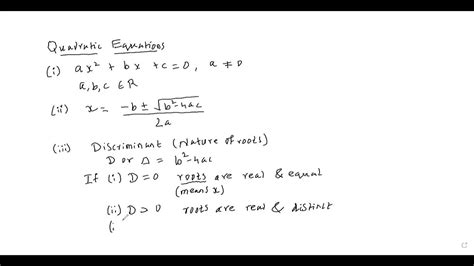 Quadratic Equations
(i) ax² + bx + c = 0, a ≠ 0
a, b, c ∈ R
(ii) x = (-b ± √(b²-4ac)) / 2a
(iii) Discriminant (Nature of roots)
D or Δ = b²-4ac
If (i) D = 0 roots are real & equal
(means x)
(ii) D > 0 roots are real & distinct
(i